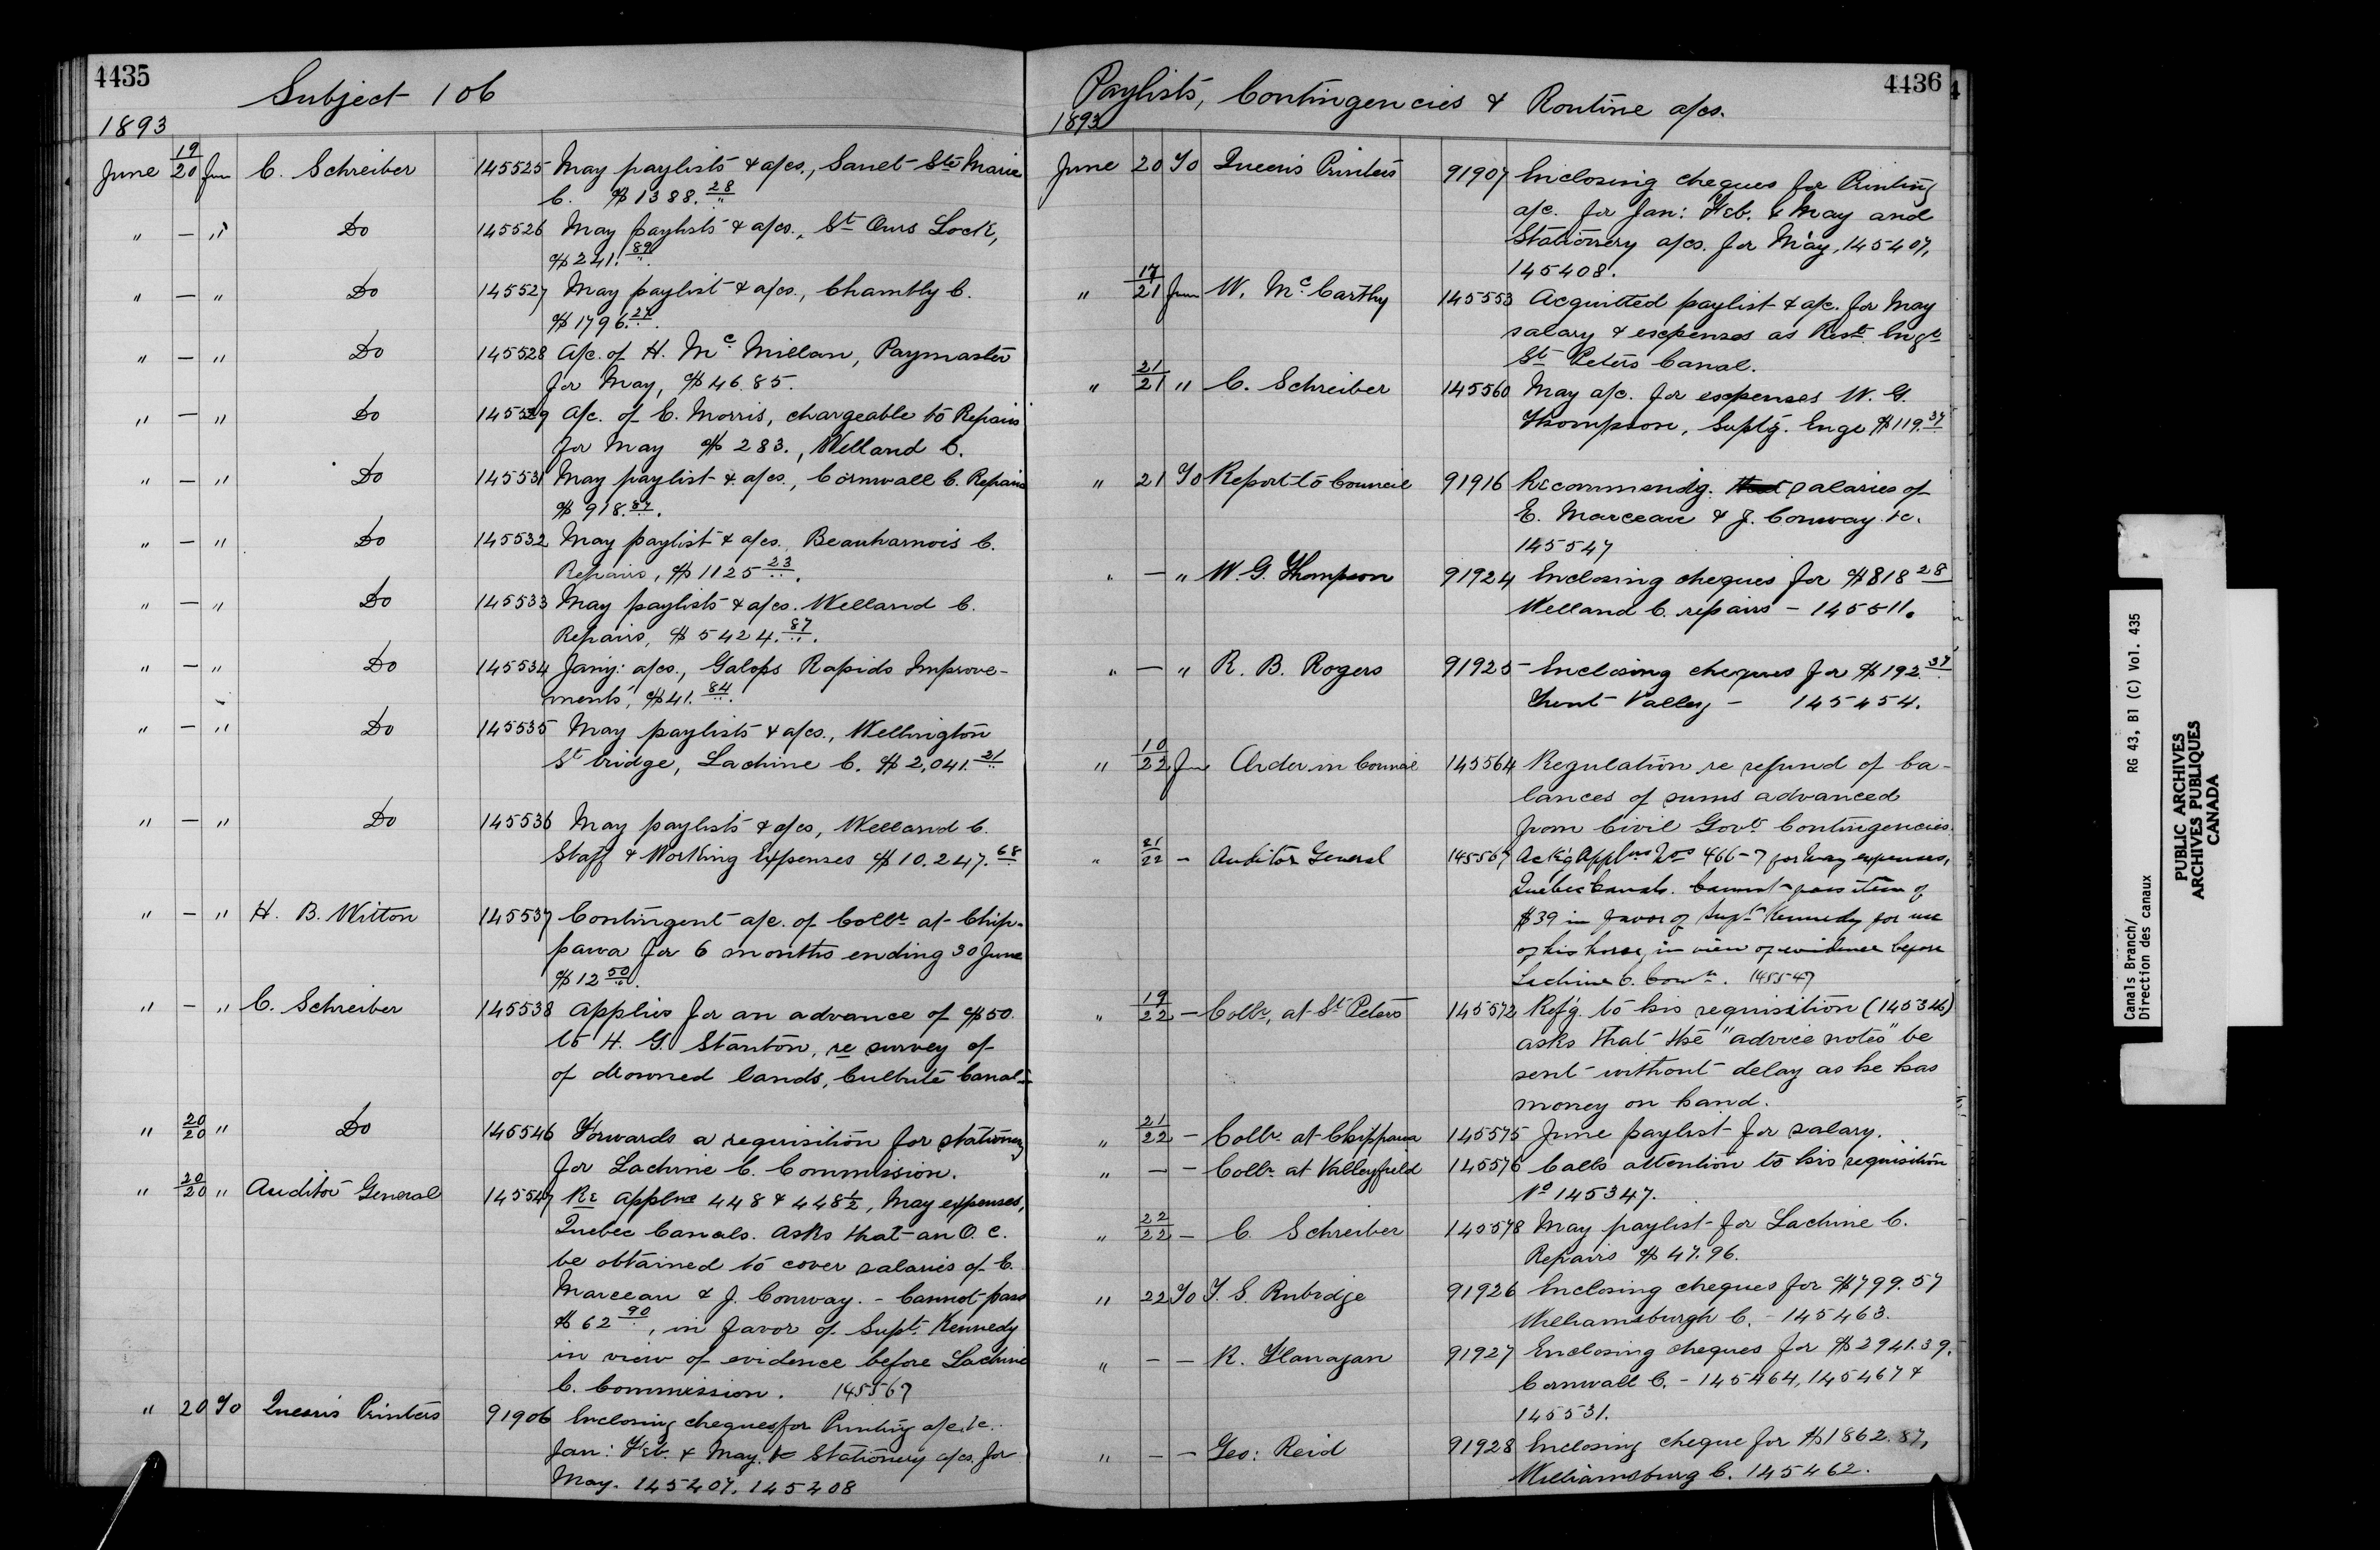 4435
Subject 106
1893
June 19/20 fm C. Schreiber 145525 May paylists & a/cs., Sault Ste Marie
C. $1388.28
" — " Do 145526 May paylists & a/cs., St Ours Lock,
$241.89
" — " Do 145527 May paylist & a/cs., Chambly C.
$1796.27.
" — " Do 145528 A/c. of H. McMillan, Paymaster
for May, $46.85.
" — " Do 145529 A/c. of C. Morris, chargeable to Repairs
for May $283., Welland C.
" — " Do 145531 May paylist & a/cs., Cornwall C. Repairs
$918.37.
" — " Do 145532 May paylist & a/cs. Beauharnois C.
Repairs, $1125 23.
" — " Do 145533 May paylists & a/cs. Welland C.
Repairs, $5424.87.
" — " Do 145534 Jany: a/cs., Galops Rapids Improve-
ments, $41.84.
" — " Do 145535 May paylists & a/cs., Wellington
St bridge, Lachine C. $2,041.21
" — " Do 145536 May paylists & a/cs, Welland C.
Staff & Working Expenses $10.247.68
" — " H. B. Witton 145537 Contingent a/c. of Collr at Chip-
pawa for 6 months ending 30 June
$12 50.
" — " C. Schreiber 145538 Applies for an advance of $50.
to H. G. Stanton, re survey of
of drowned lands, Culbute Canal-
" 20/20 " Do 145546 Forwards a requisition for stationery
for Lachine C. Commission.
" 20/20 " Auditor General 145547 Re Applns 448 & 448½, May expenses,
Quebec Canals. Asks that an O. C.
be obtained to cover salaries of E.
Marceau & J. Conway. - Cannot pass
$62 90, in favor of Supt. Kennedy
in view of evidence before Lachine
C. Commission. 145567
" 20 To Queen's Printers 91906 Enclosing cheques for Printing a/c. &c.
Jan: Feb. & May, & Stationery a/cs. for
May. 145407. 145408
4436
Paylists, Contingencies & Routine a/cs.
1893
June 20 To Queen's Printers 91907 Enclosing cheques for Printing
a/c. for Jan: Feb. & May and
Stationery a/cs. for May, 145407,
145408.
" 17/21 from W. McCarthy 145553 Acquitted paylist & a/c. for May
salary & expenses as Rest. Engr
St Peters Canal.
" 21/21 " C. Schreiber 145560 May a/c. for expenses W. G.
Thompson, Suptg. Engr $119.37
" 21 To Report to Council 91916 Recommendg. salaries of
E. Marceau & J. Conway. &c.
145547
" — " W. G. Thompson 91924 Enclosing cheques for $818 28
Welland C. repairs - 145511.
" — " R. B. Rogers 91925 Enclosing cheques for $192.37
Trent Valley - 145454.
" 10/22 fm Order in Council 145564 Regulation re refund of ba-
lances of sums advanced
from Civil Govt Contingencies.
" 21/22 - Auditor General 145567 Ackg Applns Nos 466-7 for May expenses,
Quebec Canals. Cannot pass item of
$39 in favor of Supt Kennedy for use
of his horse, in view of evidence before
Lachine C. Comn. 145547
" 19/22 - Collr, at St Peters 145572 Refg. to his requisition (145346)
asks that the "advice notes" be
sent without delay as he has
money on hand.
" 21/22 - Collr. at Chippawa 145575 June paylist for salary.
" — - Collr at Valleyfield 145576 Calls attention to his requisition
No 145347.
" 22/22 - C. Schreiber 145578 May paylist for Lachine C.
Repairs $47.96.
" 22 To T. S. Rubidge 91926 Enclosing cheques for $799.57
Williamsburgh C. - 145463.
" - - R. Flanagan 91927 Enclosing cheques for $2941.39.
Cornwall C. - 145464, 145467 &
145531.
" - - Geo: Reid 91928 Enclosing cheque for $1862.87,
Williamsburg C. 145462.
Canals Branch/ RG 43, B1 (C) Vol. 435
Direction des canaux
PUBLIC ARCHIVES
ARCHIVES PUBLIQUES
CANADA